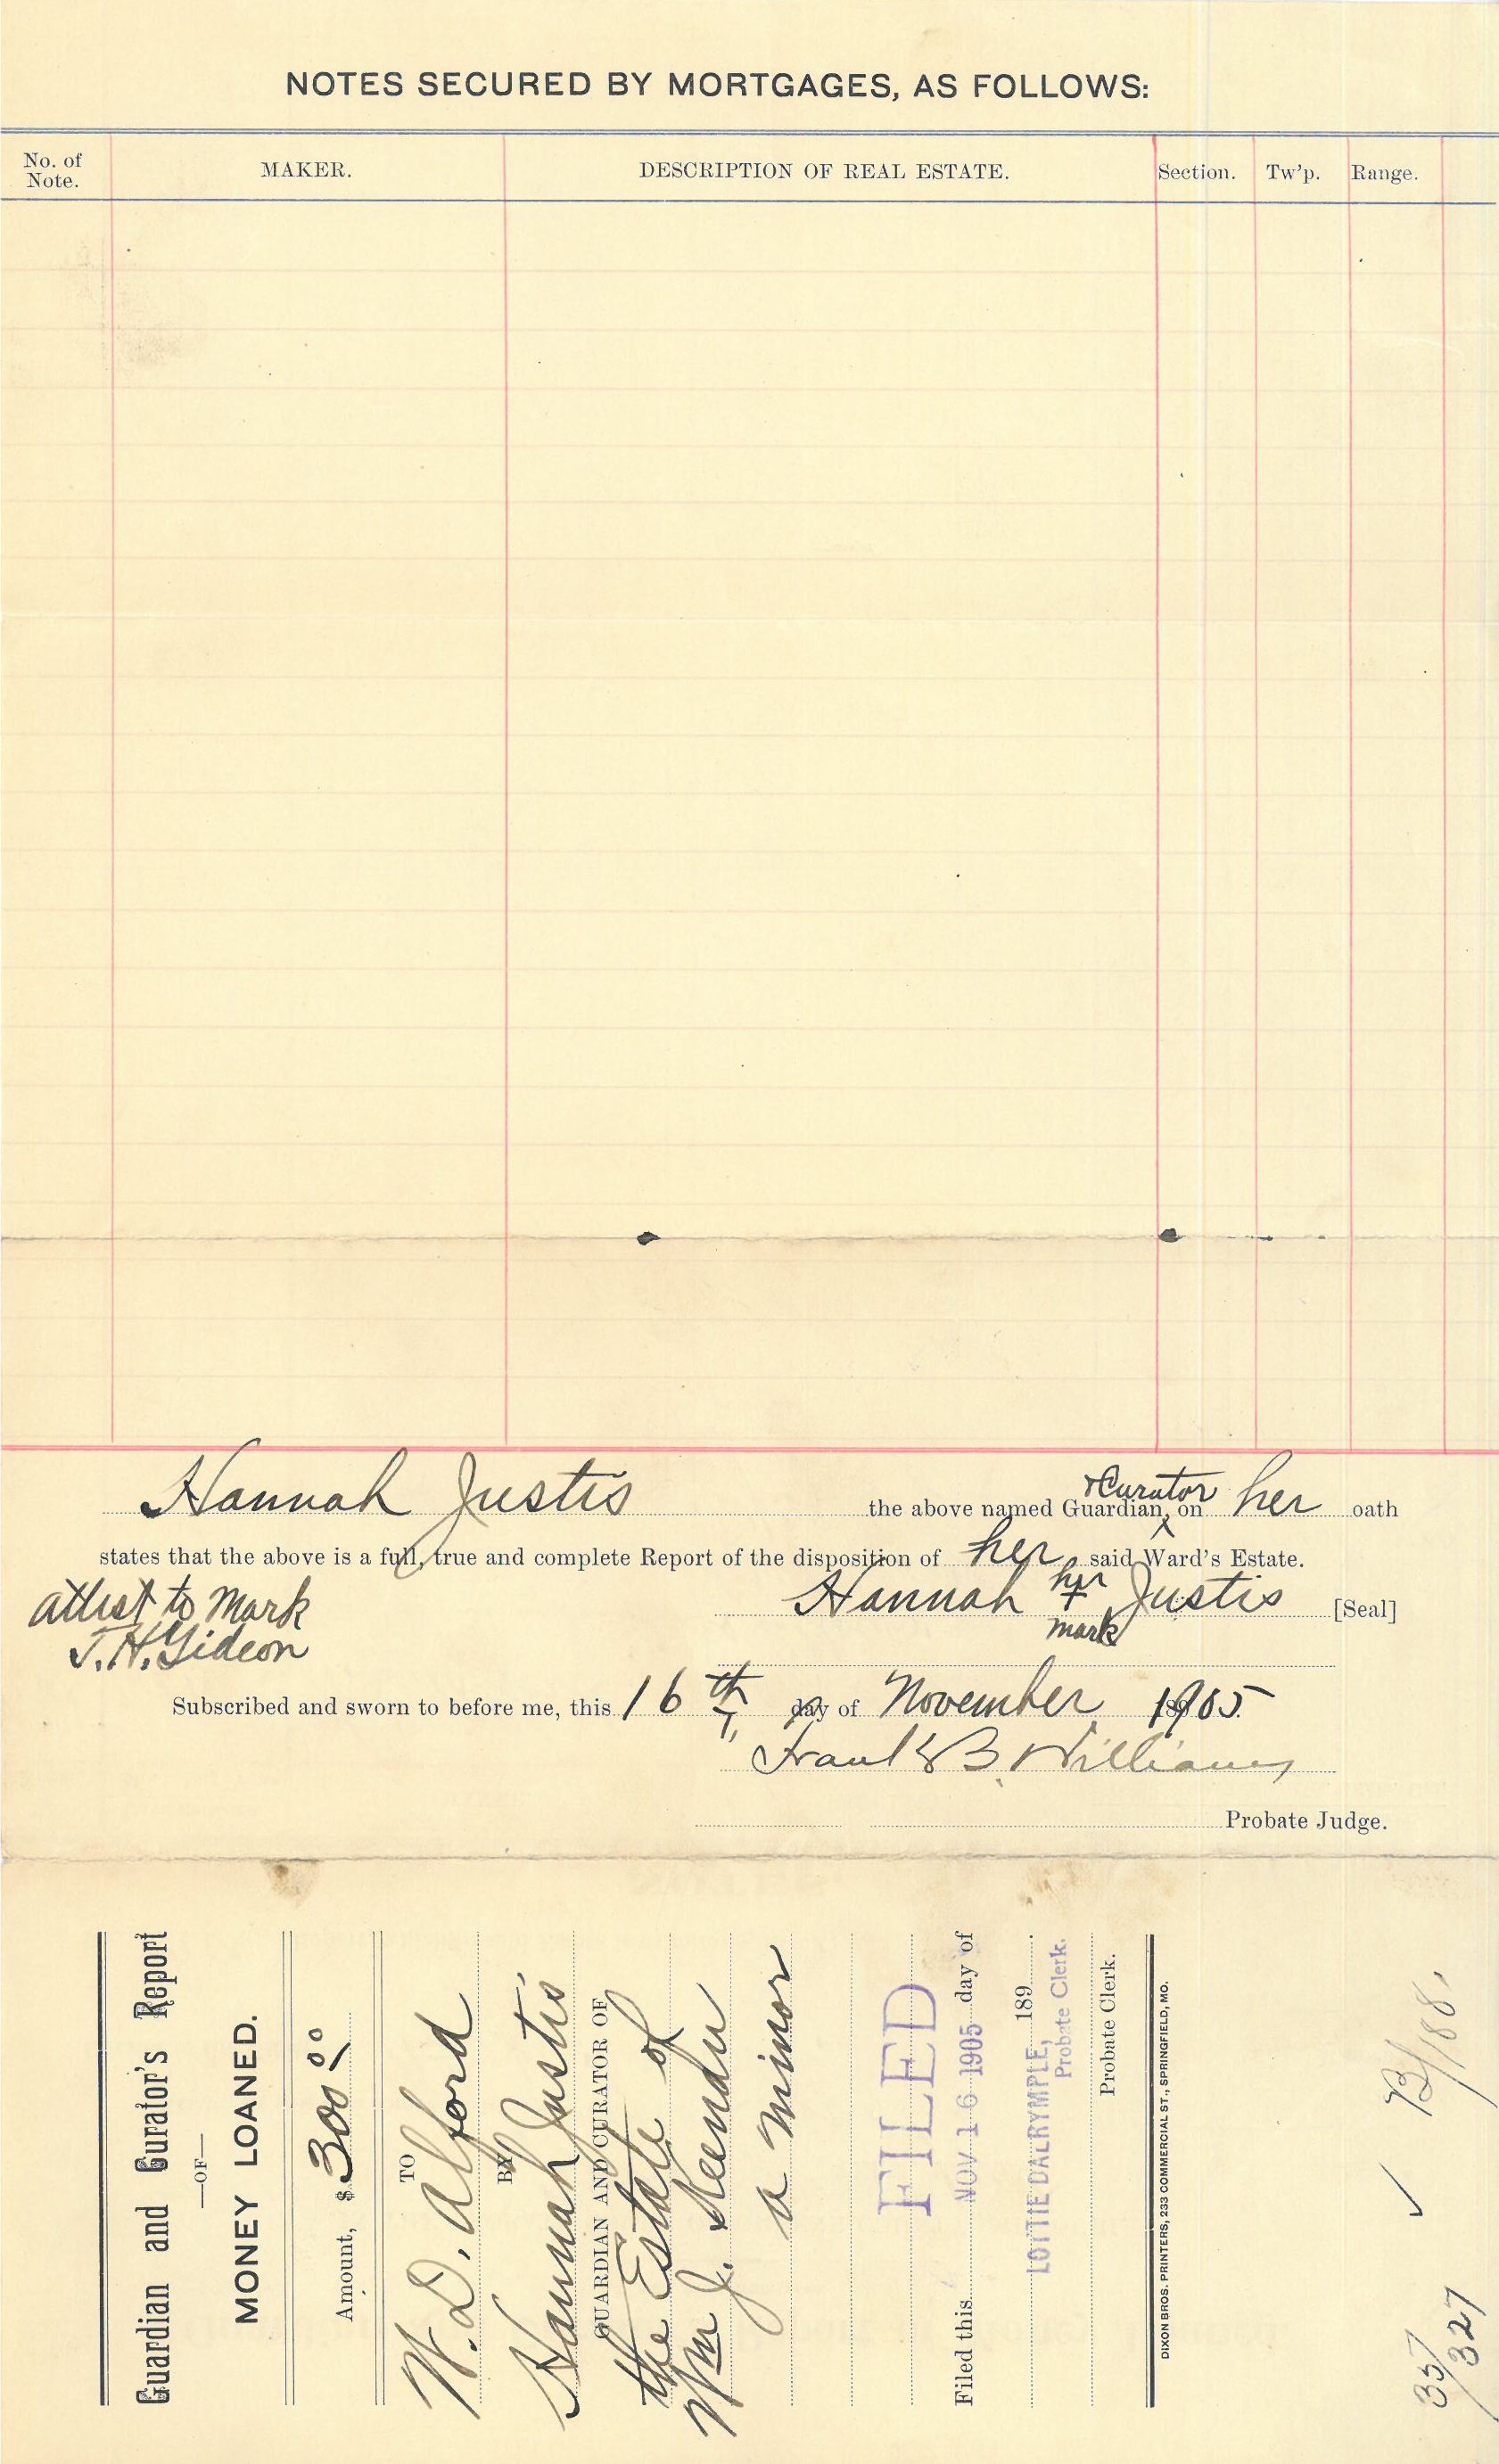 NOTES SECURED BY MORTGAGES, AS FOLLOWS:
No. of Note. MAKER. DESCRIPTION OF REAL ESTATE. Section. Tw'p. Range.
Hannah Justis the above named Guardian, & Curator on her oath
states that the above is a full, true and complete Report of the disposition of her said Ward's Estate.
attest to mark
J. H. Gideon
Hannah her + mark Justis [Seal]
Subscribed and sworn to before me, this 16th day of November 1905
Frank B. Williams
Probate Judge.
Guardian and Curator's Report
—OF—
MONEY LOANED.
Amount, $ 300 00
TO
W. D. Alford
BY
Hannah Justis
GUARDIAN AND CURATOR OF
the Estate of
Wm J.
a minor
FILED
Filed this NOV 16 1905 day of
189
LOTTIE DALRYMPLE,
Probate Clerk.
Probate Clerk.
DIXON BROS. PRINTERS, 233 COMMERCIAL ST., SPRINGFIELD, MO.
B/188.
35/327